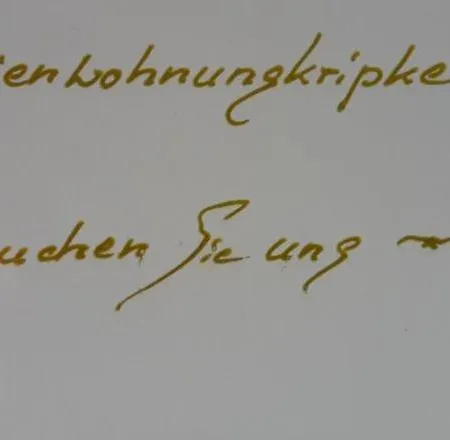 ienwohnungkripke
uchen Sie uns